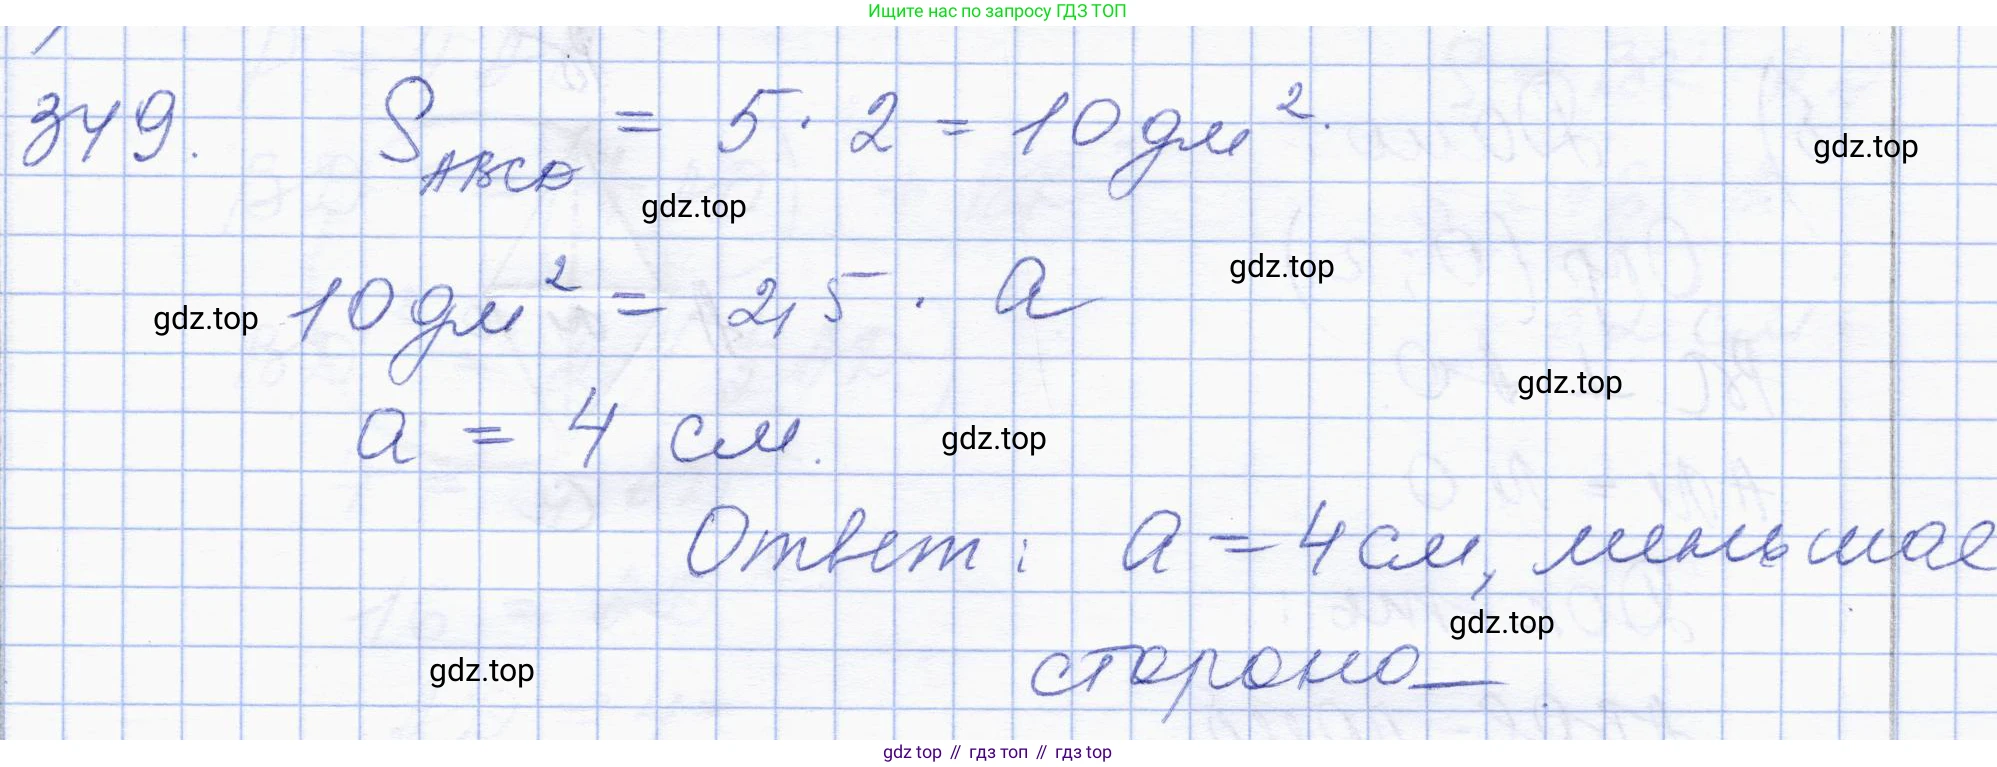 Ищите нас по запросу ГДЗ ТОП
349. S_ABCD = 5 · 2 = 10 дм².
gdz.top
gdz.top
10 дм² = 2,5 · a
gdz.top
gdz.top
gdz.top
a = 4 см.
gdz.top
Ответ: a = 4 см, меньшая
gdz.top
сторона
gdz.top
gdz top // гдз топ // гдз top